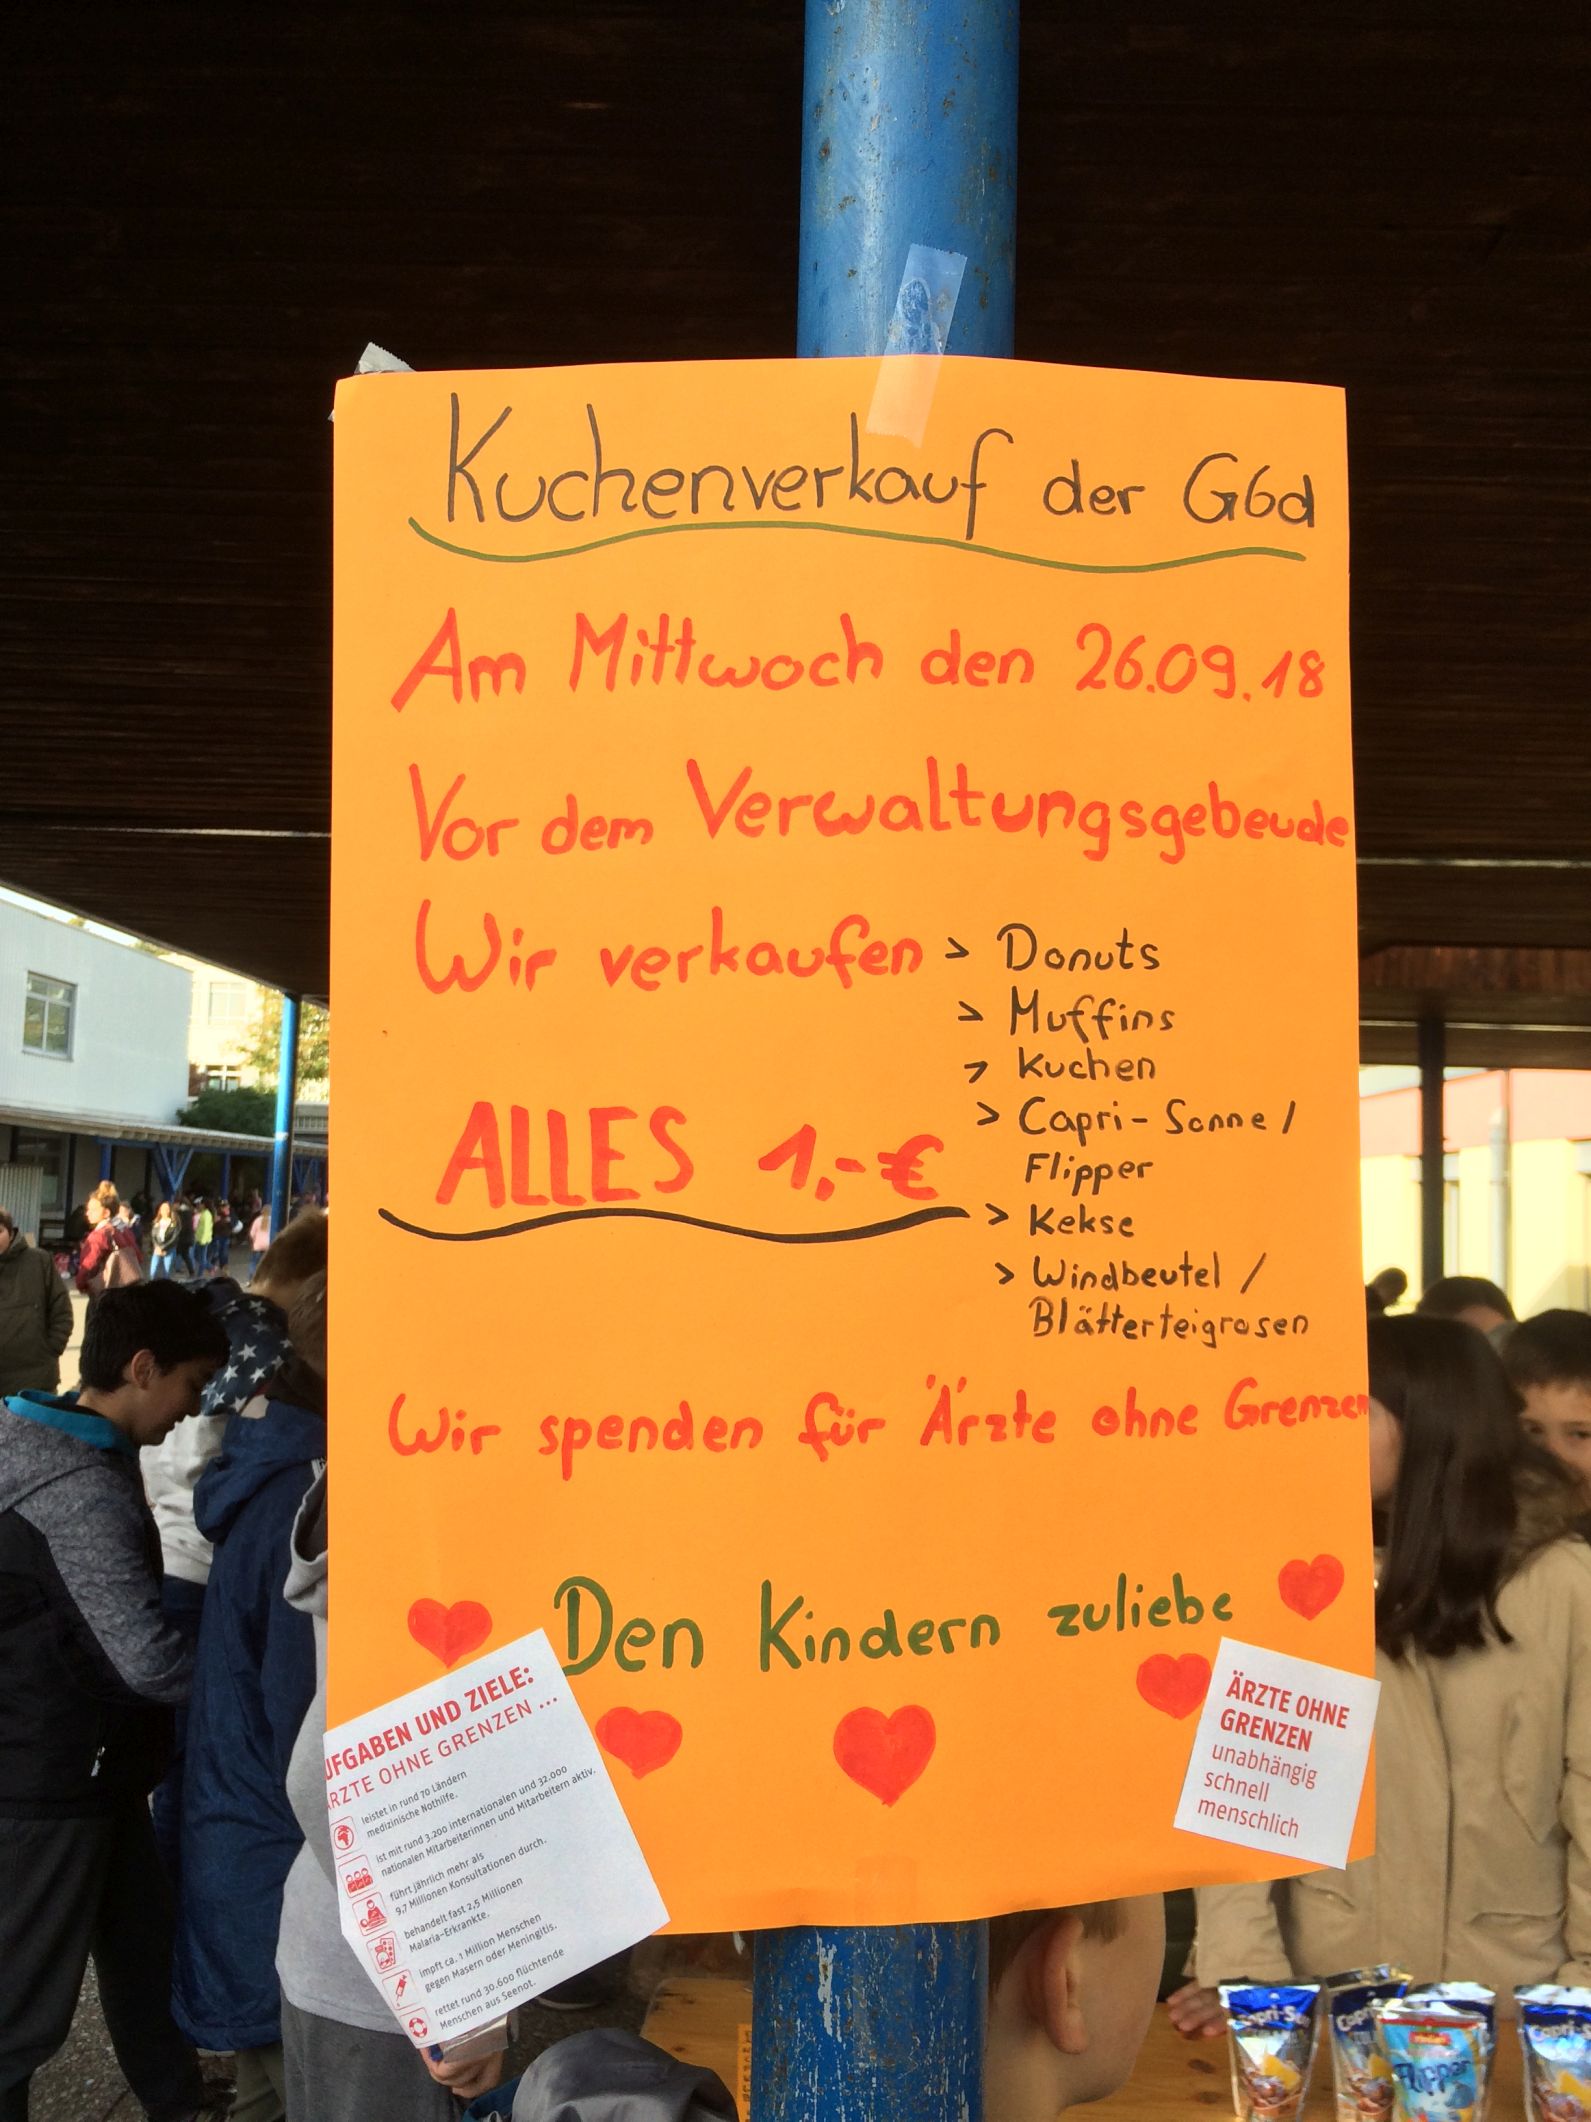 Kuchenverkauf der G6d
Am Mittwoch den 26.09.18
Vor dem Verwaltungsgebeude
Wir verkaufen > Donuts
> Muffins
> Kuchen
> Capri-Sonne /
Flipper
ALLES 1,-€
> Kekse
> Windbeutel /
Blätterteigrosen
Wir spenden für Ärzte ohne Grenzen
Den Kindern zuliebe
UFGABEN UND ZIELE:
RZTE OHNE GRENZEN ...
leistet in rund 70 Ländern
medizinische Nothilfe.
ist mit rund 3.200 internationalen und 32.000
nationalen Mitarbeiterinnen und Mitarbeitern aktiv.
führt jährlich mehr als
9,7 Millionen Konsultationen durch.
behandelt fast 2,5 Millionen
Malaria-Erkrankte.
impft ca. 1 Million Menschen
gegen Masern oder Meningitis.
rettet rund 30.600 flüchtende
Menschen aus Seenot.
ÄRZTE OHNE
GRENZEN
unabhängig
schnell
menschlich
Capri-S
Capri-
Flipper
Capri-S